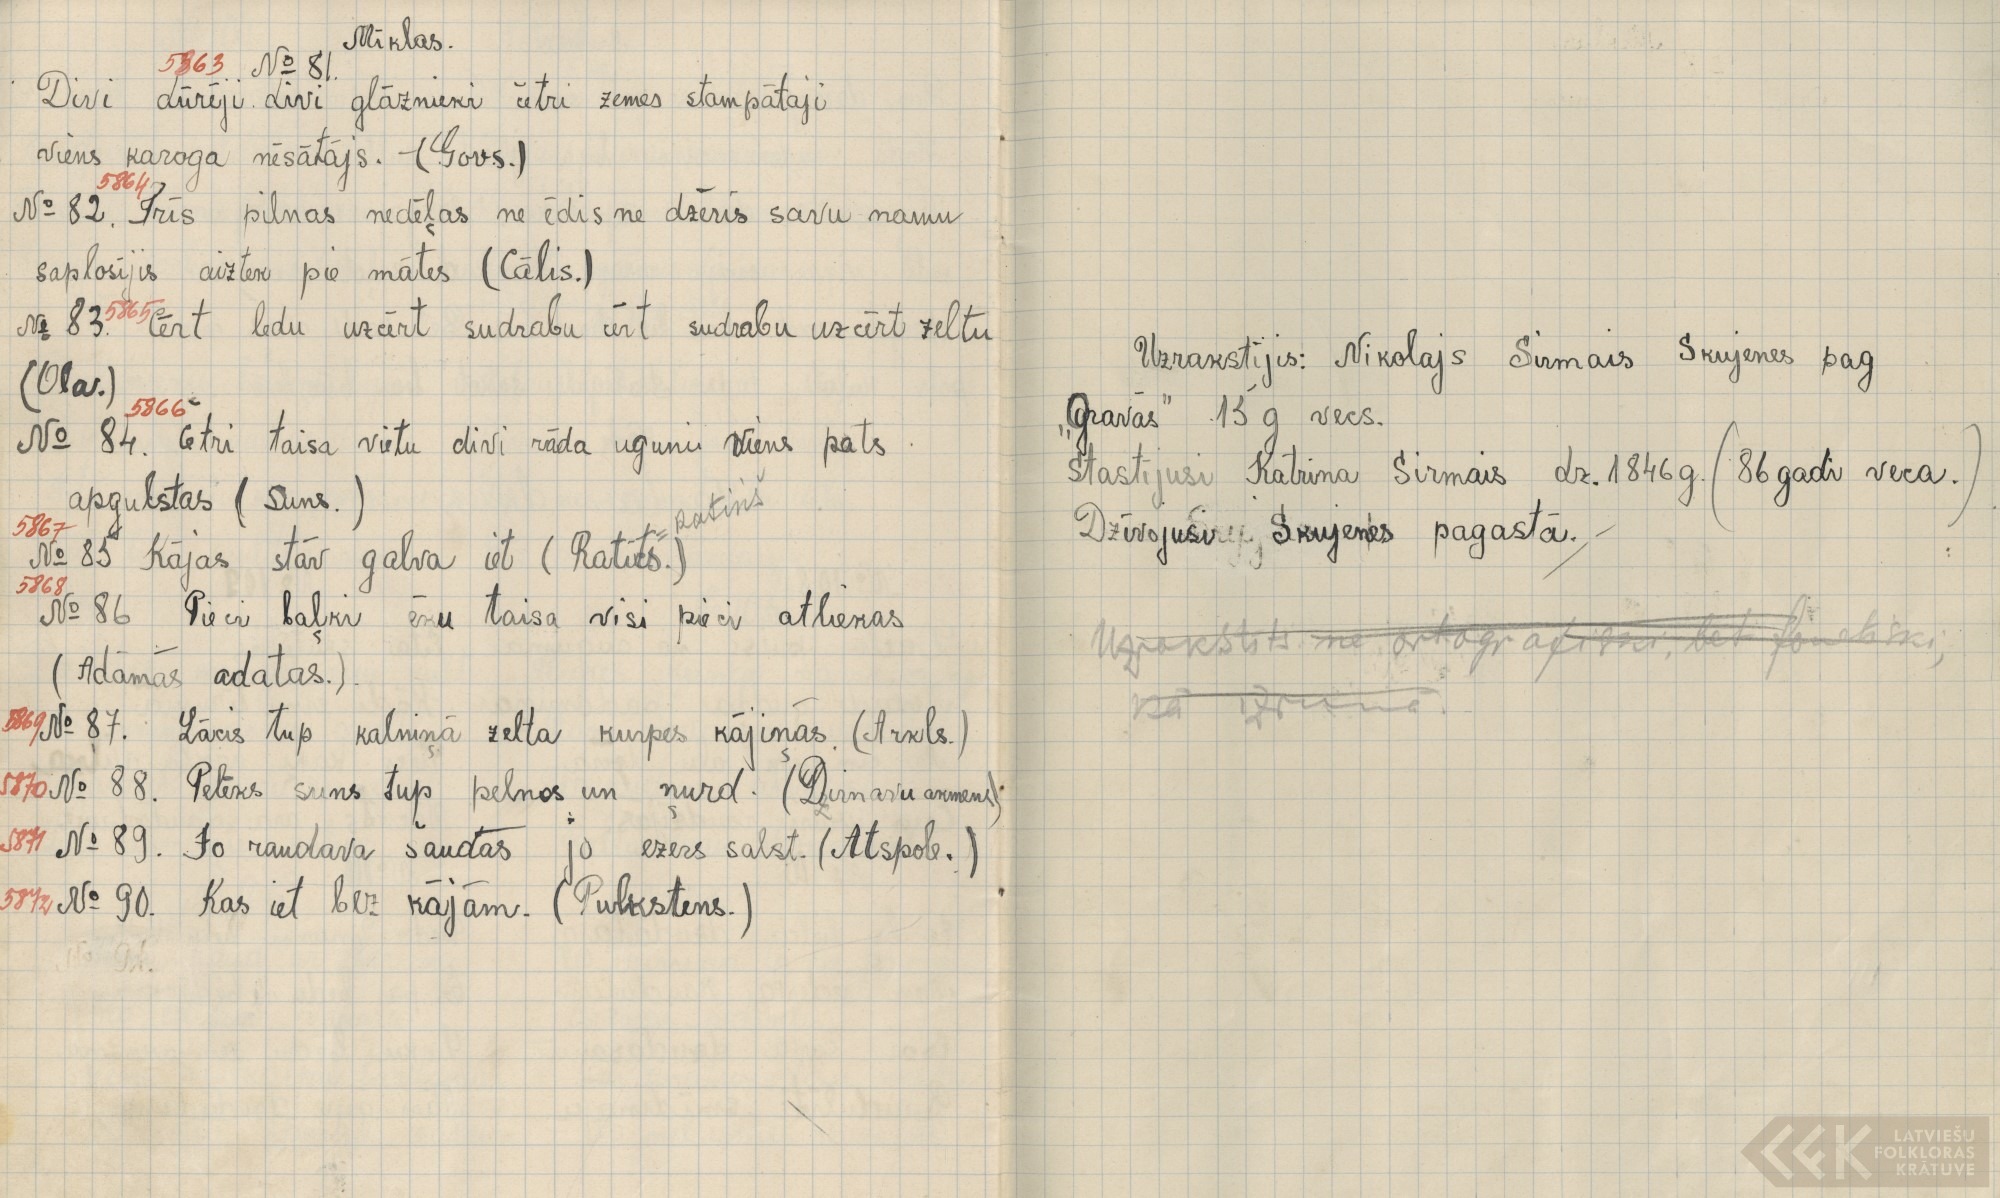 Mīklas.
5863 № 81.
Divi dūrēji divi glāznieki četri zemes stampātaji
viens karoga nēsātājs. - (Govs.)
5864
№ 82. Trīs pilnas nedēļas ne ēdis ne dzēris savu namu
saplosījis aiztek pie mātes (Cālis.)
№ 83. 5865 Cērt ledu uzcērt sudrabu cērt sudrabu uzcērt zeltu
(Ola.)
5866
№ 84. Četri taisa vietu divi rāda uguni viens pats
apgulstas (Suns.)
5867 = ratiņš
№ 85 Kājas stāv galva iet (Ratits.)
5868
№ 86 Pieci baļķi ēku taisa visi pieci atliekas
(Adāmās adatas.)
5869 № 87. Lācis tup kalniņā zelta kurpes kājiņās. (Arkls.)
5870 № 88. Pelēks suns tup pelnos un ņurd. (Dzirnavu akmens)
5871 № 89. Jo raudava šaudās jo ezers salst. (Atspole.)
5872 № 90. Kas iet bez kājām. (Pulkstens.)
Uzrakstījis: Nikolajs Sirmais Skujenes pag
"Gravās" 15 g vecs.
Stastijusi Katrina Sirmais dz. 1846 g. (86 gadi veca.)
Dzīvojusi Skujenes pagastā.
Uzrakstīts ne ortografiski, bet fonetiski,
kā izrunā.
LATVIEŠU
FOLKLORAS
KRĀTUVE